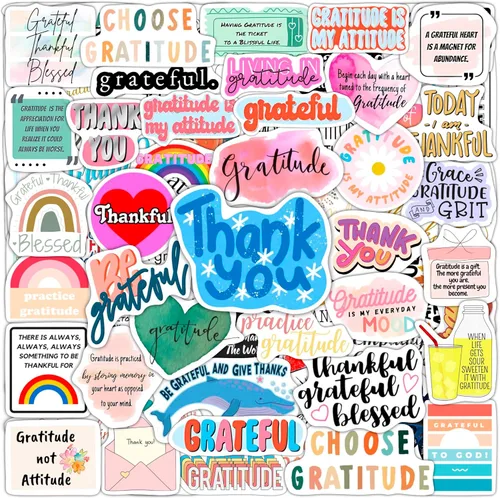 Grateful
Thankful
Blessed
CHOOSE
GRATITUDE
HAVING GRATITUDE IS
THE TICKET
TO A BLISSFUL LIFE.
GRATITUDE IS
MY ATTITUDE
A GRATEFUL HEART
IS A MAGNET FOR
ABUNDANCE.
grateful.
LIVING IN
gratitude
Begin each day with a heart
tuned to the frequency of
Gratitude
GRATITUDE IS THE
APPRECIATION FOR
LIFE WHEN YOU
REALIZE IT COULD
ALWAYS BE WORSE.
THANK
YOU
gratitude is
my attitude
grateful
TODAY
I am
THANKFUL
GRATITUDE
Gratitude
GRATITUDE IS
MY ATTITUDE
Grace
GRATITUDE
AND GRIT
Grateful Thankful
Blessed
Thankful
Thank
You
THANK
YOU
Gratitude is a gift.
The more grateful
you are,
the more present you
become.
practice
gratitude
BE
grateful
gratitude
Gratitude
IS MY EVERYDAY
MOOD
practice
gratitude
WHEN
LIFE
GETS
SOUR
SWEETEN
IT WITH
GRATITUDE
THERE IS ALWAYS,
ALWAYS, ALWAYS
SOMETHING TO BE
THANKFUL FOR
Gratitude is practiced
by storing memory in
your heart as opposed
to your mind.
BE GRATEFUL AND GIVE THANKS
Thankful
grateful
blessed
Gratitude
not
Attitude
Thank you!
GRATEFUL
GRATITUDE
CHOOSE
GRATITUDE
GRATEFUL
TO GOD!